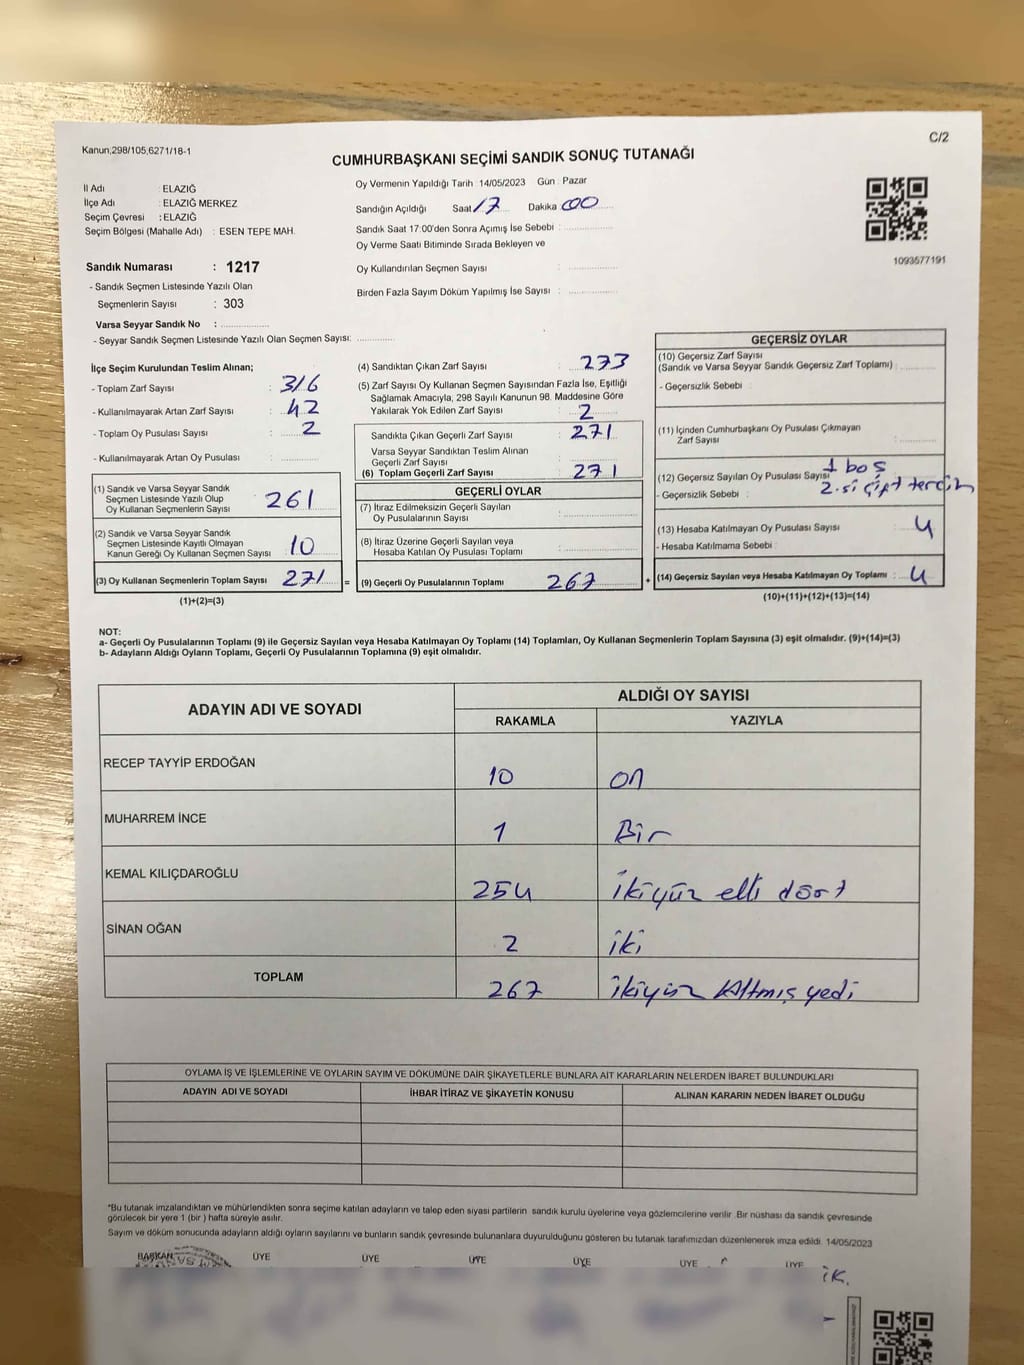 Kanun;298/105,6271/18-1
C/2
CUMHURBAŞKANI SEÇİMİ SANDIK SONUÇ TUTANAĞI
İl Adı : ELAZIĞ
İlçe Adı : ELAZIĞ MERKEZ
Seçim Çevresi : ELAZIĞ
Seçim Bölgesi (Mahalle Adı) : ESEN TEPE MAH.
Oy Vermenin Yapıldığı Tarih 14/05/2023 Gün : Pazar
Sandığın Açıldığı Saat 17 Dakika 00
Sandık Saat 17:00'den Sonra Açımış İse Sebebi :
Oy Verme Saati Bitiminde Sırada Bekleyen ve
Oy Kullandırılan Seçmen Sayısı :
Birden Fazla Sayım Döküm Yapılmış İse Sayısı :
1093577191
Sandık Numarası : 1217
- Sandık Seçmen Listesinde Yazılı Olan
Seçmenlerin Sayısı : 303
Varsa Seyyar Sandık No :
- Seyyar Sandık Seçmen Listesinde Yazılı Olan Seçmen Sayısı:
İlçe Seçim Kurulundan Teslim Alınan;
- Toplam Zarf Sayısı : 316
- Kullanılmayarak Artan Zarf Sayısı : 42
- Toplam Oy Pusulası Sayısı : 2
- Kullanılmayarak Artan Oy Pusulası :
(1) Sandık ve Varsa Seyyar Sandık
Seçmen Listesinde Yazılı Olup
Oy Kullanan Seçmenlerin Sayısı 261
(2) Sandık ve Varsa Seyyar Sandık
Seçmen Listesinde Kayıtlı Olmayan
Kanun Gereği Oy Kullanan Seçmen Sayısı 10
(3) Oy Kullanan Seçmenlerin Toplam Sayısı 271 =
(1)+(2)=(3)
(4) Sandıktan Çıkan Zarf Sayısı : 273
(5) Zarf Sayısı Oy Kullanan Seçmen Sayısından Fazla İse, Eşitliği
Sağlamak Amacıyla, 298 Sayılı Kanunun 98. Maddesine Göre
Yakılarak Yok Edilen Zarf Sayısı : 2
Sandıkta Çıkan Geçerli Zarf Sayısı : 271
Varsa Seyyar Sandıktan Teslim Alınan
Geçerli Zarf Sayısı :
(6) Toplam Geçerli Zarf Sayısı : 271
GEÇERLİ OYLAR
(7) İtiraz Edilmeksizin Geçerli Sayılan
Oy Pusulalarının Sayısı :
(8) İtiraz Üzerine Geçerli Sayılan veya
Hesaba Katılan Oy Pusulası Toplamı :
(9) Geçerli Oy Pusulalarının Toplamı 267 +
GEÇERSİZ OYLAR
(10) Geçersiz Zarf Sayısı
(Sandık ve Varsa Seyyar Sandık Geçersiz Zarf Toplamı) :
- Geçersizlik Sebebi :
(11) İçinden Cumhurbaşkanı Oy Pusulası Çıkmayan
Zarf Sayısı :
(12) Geçersiz Sayılan Oy Pusulası Sayısı 1 boş
- Geçersizlik Sebebi : 2.si çift tercih
(13) Hesaba Katılmayan Oy Pusulası Sayısı : 4
- Hesaba Katılmama Sebebi :
(14) Geçersiz Sayılan veya Hesaba Katılmayan Oy Toplamı : 4
(10)+(11)+(12)+(13)=(14)
NOT:
a- Geçerli Oy Pusulalarının Toplamı (9) ile Geçersiz Sayılan veya Hesaba Katılmayan Oy Toplamı (14) Toplamları, Oy Kullanan Seçmenlerin Toplam Sayısına (3) eşit olmalıdır. (9)+(14)=(3)
b- Adayların Aldığı Oyların Toplamı, Geçerli Oy Pusulalarının Toplamına (9) eşit olmalıdır.
ADAYIN ADI VE SOYADI
ALDIĞI OY SAYISI
RAKAMLA YAZIYLA
RECEP TAYYİP ERDOĞAN 10 on
MUHARREM İNCE 1 Bir
KEMAL KILIÇDAROĞLU 254 ikiyüz elli dört
SİNAN OĞAN 2 iki
TOPLAM 267 ikiyüz Altmış yedi
OYLAMA İŞ VE İŞLEMLERİNE VE OYLARIN SAYIM VE DÖKÜMÜNE DAİR ŞİKAYETLERLE BUNLARA AİT KARARLARIN NELERDEN İBARET BULUNDUKLARI
ADAYIN ADI VE SOYADI İHBAR İTİRAZ VE ŞİKAYETİN KONUSU ALINAN KARARIN NEDEN İBARET OLDUĞU
*Bu tutanak imzalandıktan ve mühürlendikten sonra seçime katılan adayların ve talep eden siyasi partilerin sandık kurulu üyelerine veya gözlemcilerine verilir .Bir nüshası da sandık çevresinde
görülecek bir yere 1 (bir ) hafta süreyle asılır.
Sayım ve döküm sonucunda adayların aldığı oyların sayılarını ve bunların sandık çevresinde bulunanlara duyurulduğunu gösteren bu tutanak tarafımızdan düzenlenerek imza edildi. 14/05/2023
BAŞKAN ÜYE ÜYE ÜYE ÜYE ÜYE ÜYE